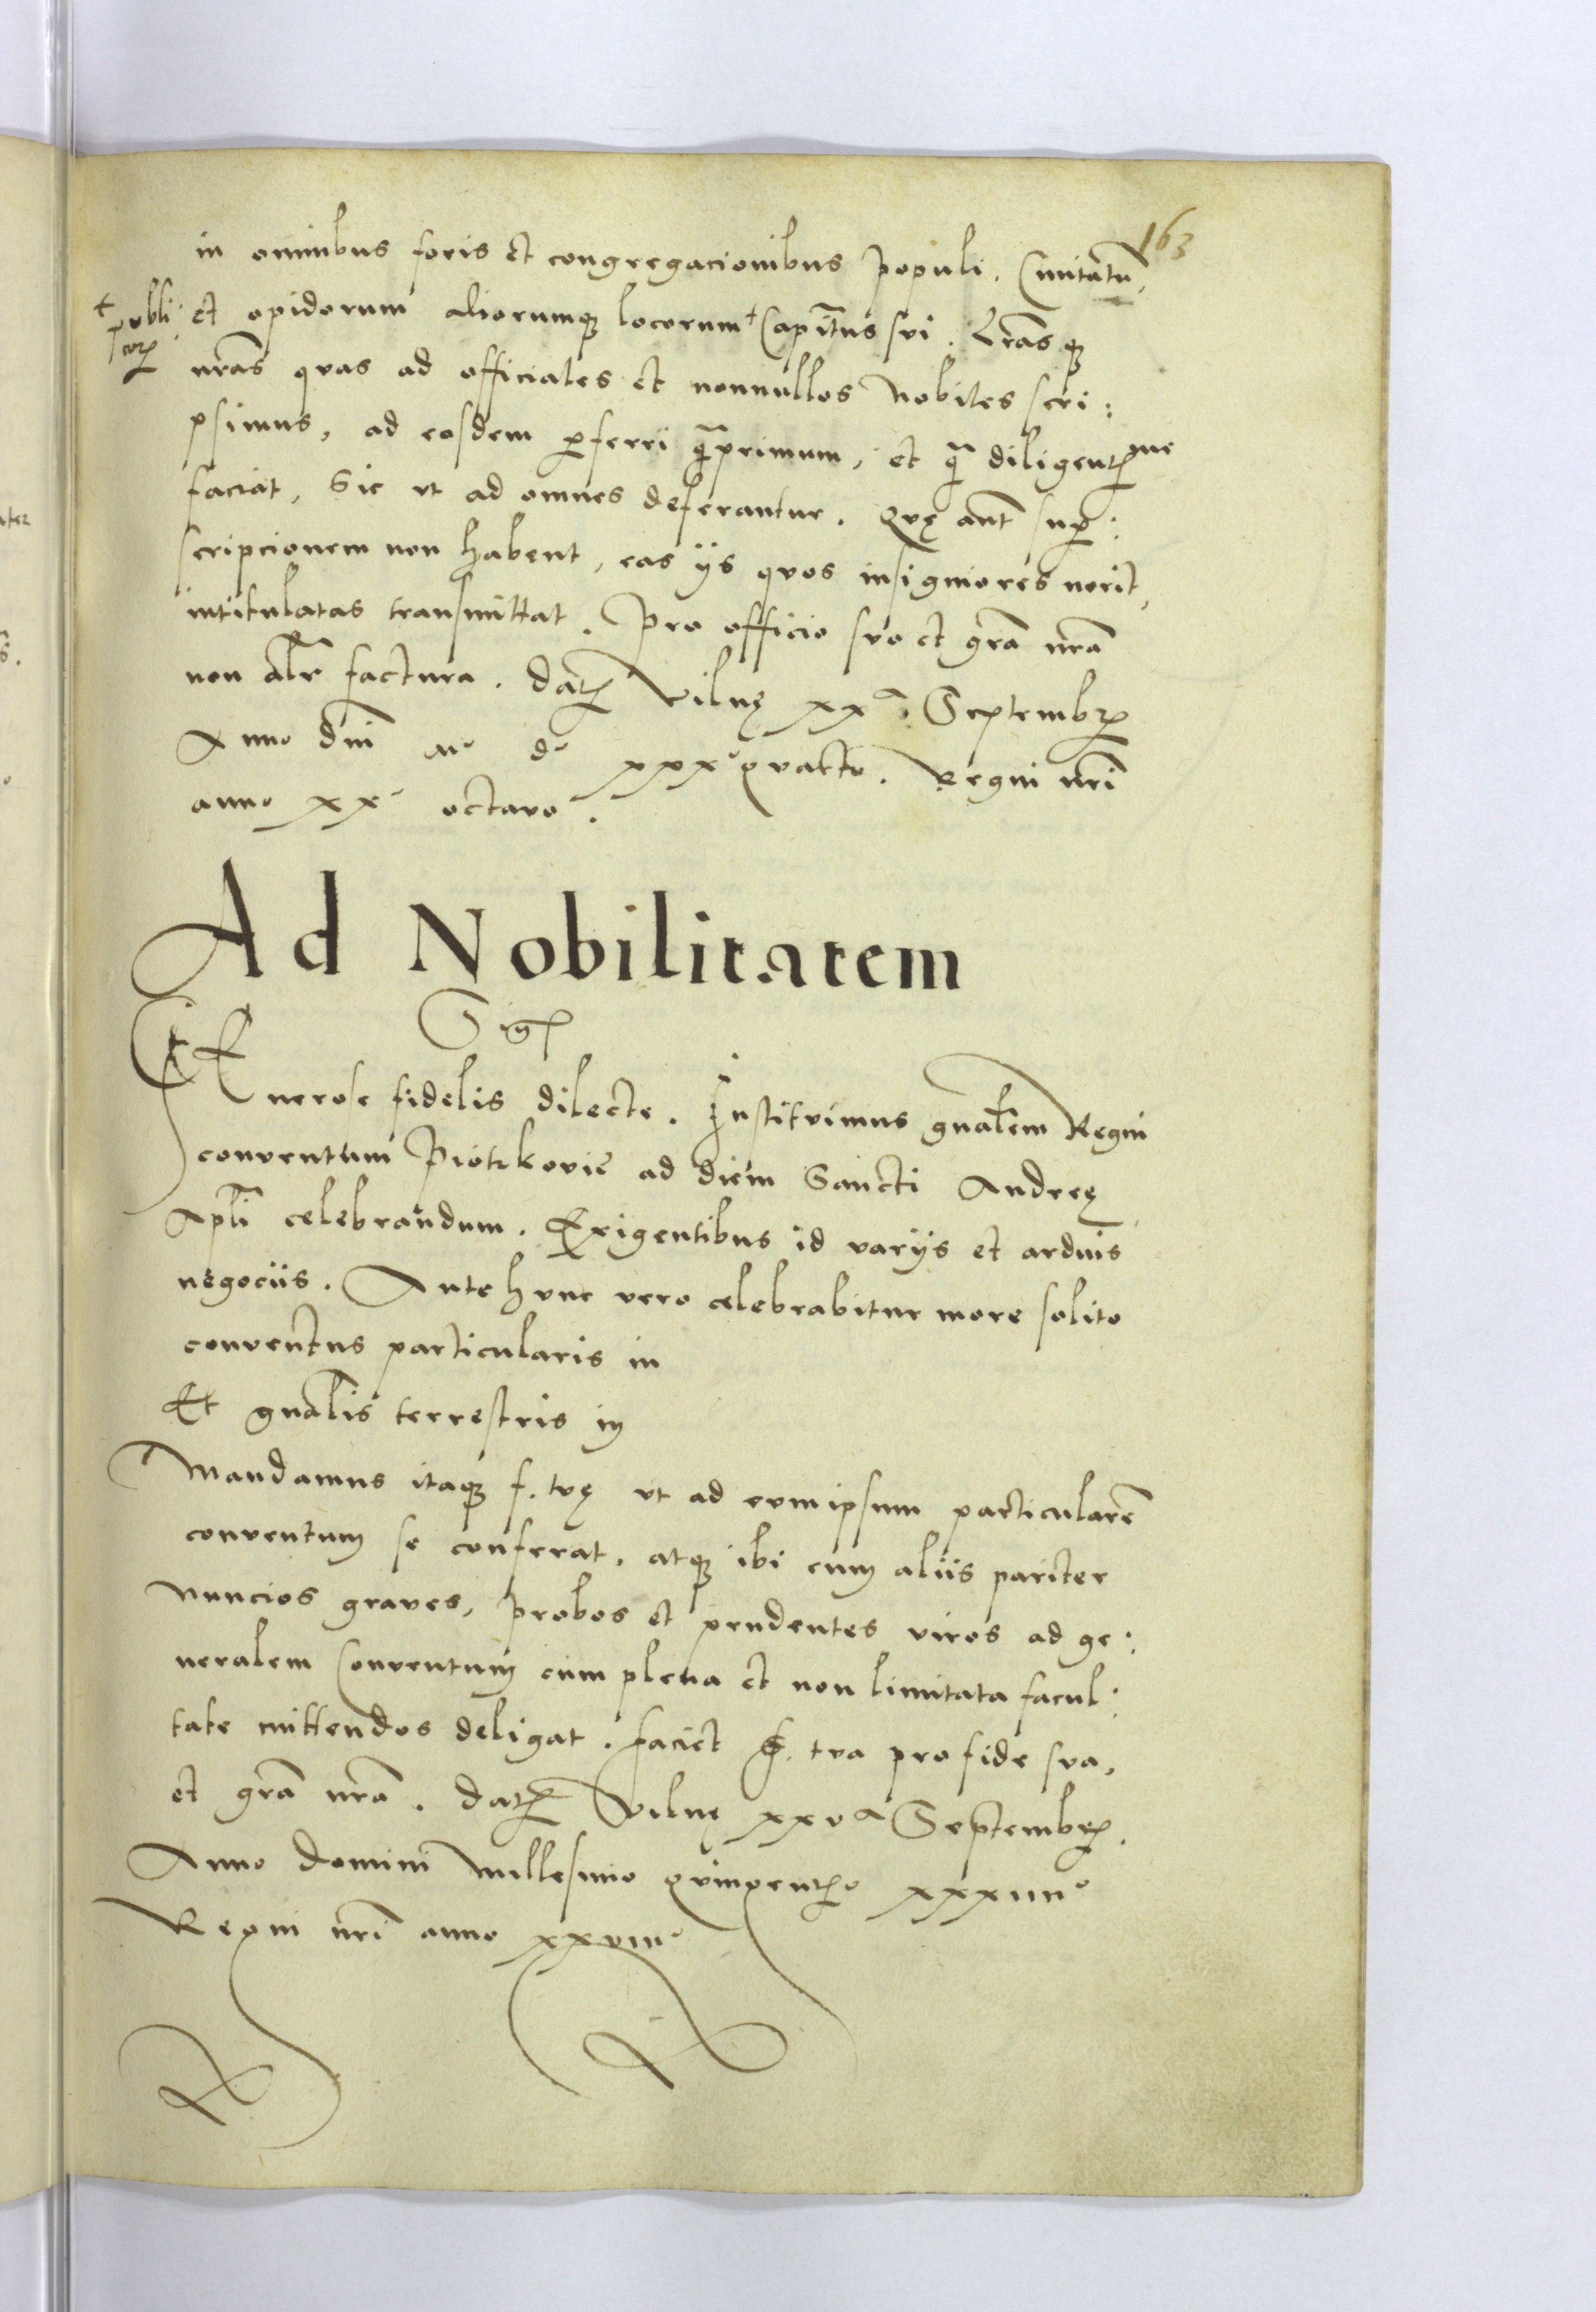 163
in omnibus foris et congregacionibus populi. Civitatũ,
et opidorum aliorumq; locorum + Capit̃tus sui. Lr̃as q;
+ publi:
corꝫ
nr̃as quas ad officiales et nonnullos Nobiles scri:
psimus, ad eosdem ꝑferri q̃primum, et q̃ diligentꝫme
faciat, Sic ut ad omnes deferantur. Quę aut̃ suꝑ:
scripcionem non habent, eas ijs quos insigniores norit,
intitulatas transmittat. Pro officio suo et gr̃a nr̃a
non alr̃ factura. Datꝫ Vilnę xxa. Septembrꝫ
Anno dñi mo do xxxo quarto. Regni nr̃i
anno xxo octavo.
Ad Nobilitatem
Sigꝫ
GEnerose fidelis dilecte. Instituimus gnalem̃ Regni
conventum Piotrkovien̄ ad diem Sancti Andreę
Apl̃i celebrandum. Exigentibus id varijs et arduis
negociis. Ante hunc vero celebrabitur more solito
conventus particularis in
Et gnal̃is terrestris in
Mandamus itaq; f. tuę ut ad eum ipsum particularẽ
conventum se conferat. atq; ibi cum aliis pariter
nuncios graves, probos et prudentes viros ad ge:
neralem Conventum cum plena et non limitata facul:
tate mittendos deligat. faciet f. tua pro fide sua,
et gr̃a nr̃a. Datꝫ Vilnę xxva Septembrꝫ.
Anno domini Millesimo quingentꝫo xxxiiiio
Regni nr̃i anno xxviiio